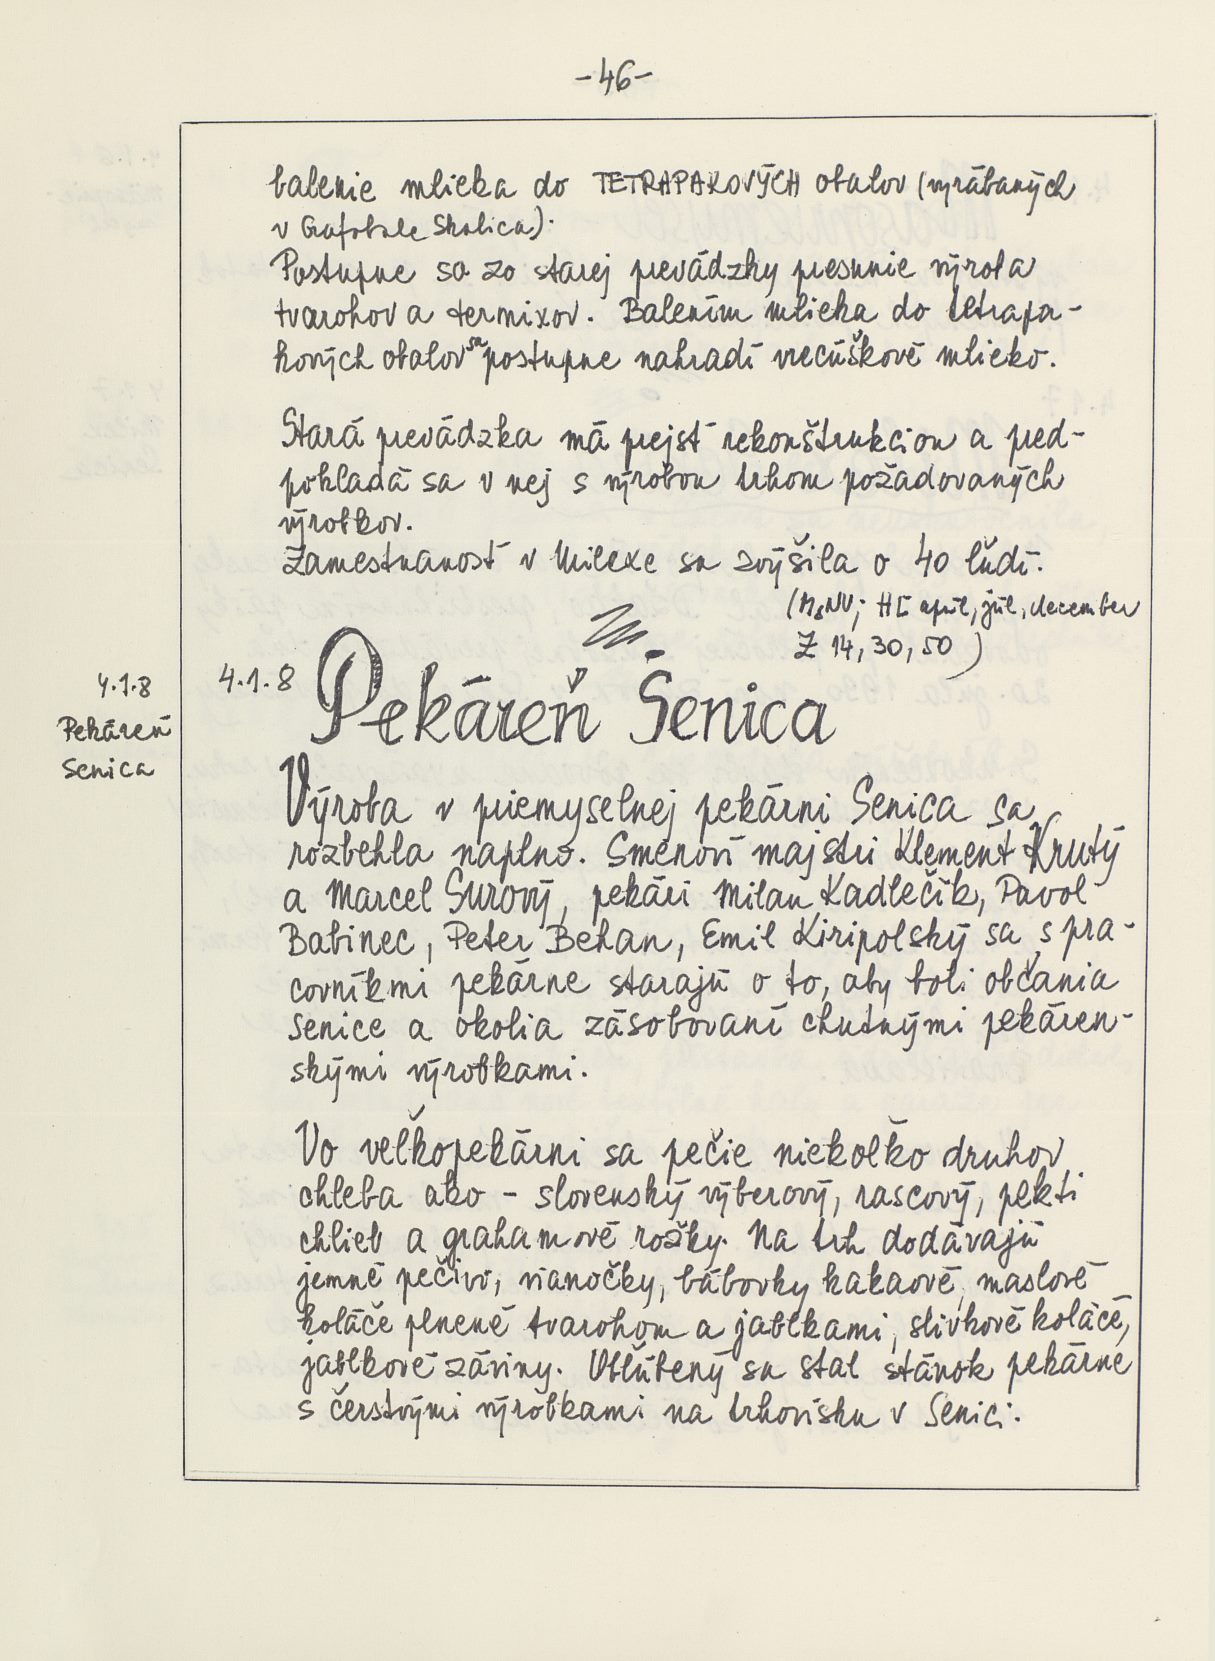 -46-
balenie mlieka do TETRAPAKOVÝCH obalov (vyrábaných
v Grafobale Skalica).
Postupne sa zo starej prevádzky presunie výroba
tvarohov a termixov. Balením mlieka do tetrapa-
kových obalov sa postupne nahradí vrecúškové mlieko.
Stará prevádzka má prejsť rekonštrukciou a pred-
pokladá sa v nej s výrobou trhom požadovaných
výrobkov.
Zamestnanosť v Milexe sa zvýšila o 40 ľudí.
(MsNV; HĽ apríl, júl, december
Z 14, 30, 50)
4.1.8
Pekáreň
Senica
4.1.8 Pekáreň Senica
Výroba v priemyselnej pekárni Senica sa
rozbehla naplno. Smenoví majstri Klement Krutý
a Marcel Surový, pekári Milan Kadlečík, Pavol
Babinec, Peter Behan, Emil Kiripolský sa s pra-
covníkmi pekárne starajú o to, aby boli občania
Senice a okolia zásobovaní chutnými pekáren-
skými výrobkami.
Vo veľkopekárni sa pečie niekoľko druhov
chleba ako - slovenský výberový, rascový, pekti
chlieb a grahamové rožky. Na trh dodávajú
jemné pečivo, vianočky, bábovky kakaové, maslové
koláče plnené tvarohom a jablkami, slivkové koláče,
jablkové záviny. Obľúbený sa stal stánok pekárne
s čerstvými výrobkami na trhovisku v Senici.